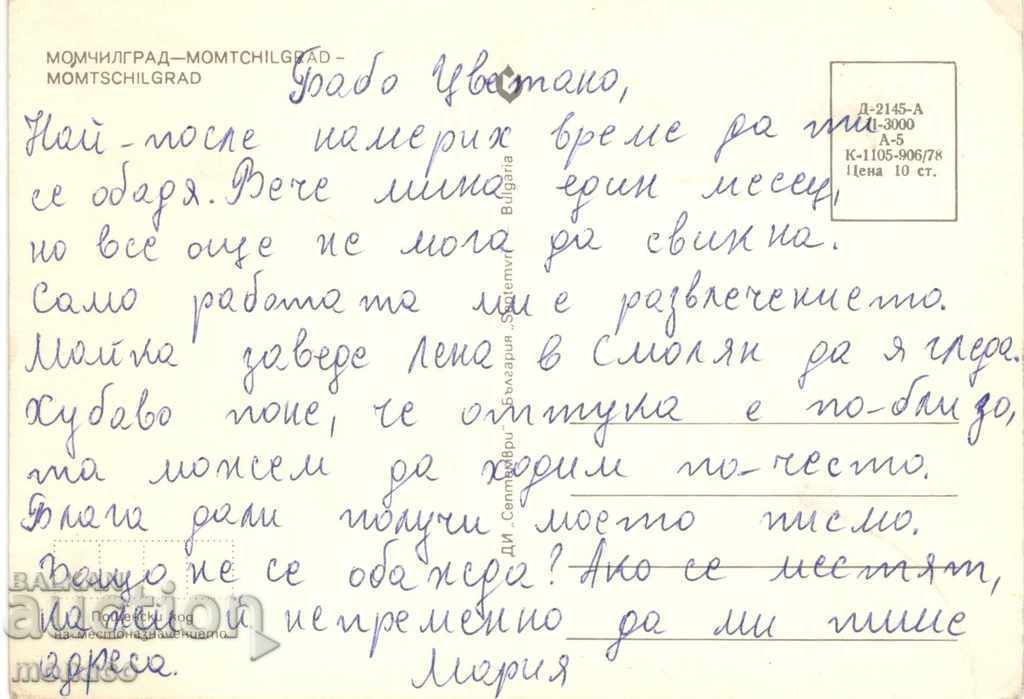 МОМЧИЛГРАД—MOMTCHILGRAD –
MOMTSCHILGRAD
Бабо Цветано,
Най-после намерих време да ти
се обадя. Вече мина един месец,
но все още не мога да свикна.
Само работата ми е развлечението.
Майка заведе Лена в Смолян да я гледа.
Хубаво поне, че оттука е по-близо,
та можем да ходим по-често.
Блага дали получи моето писмо.
Защо не се обажда? Ако се местят,
кажи й непременно да ми пише
адреса. Мария
Д-2145-А
П-3000
А-5
К-1105-906/78
Цена 10 ст.
ДИ „Септември" България „Septemvri" Bulgaria
Пощенски код
на местоназначението
БАЛКАН
auction